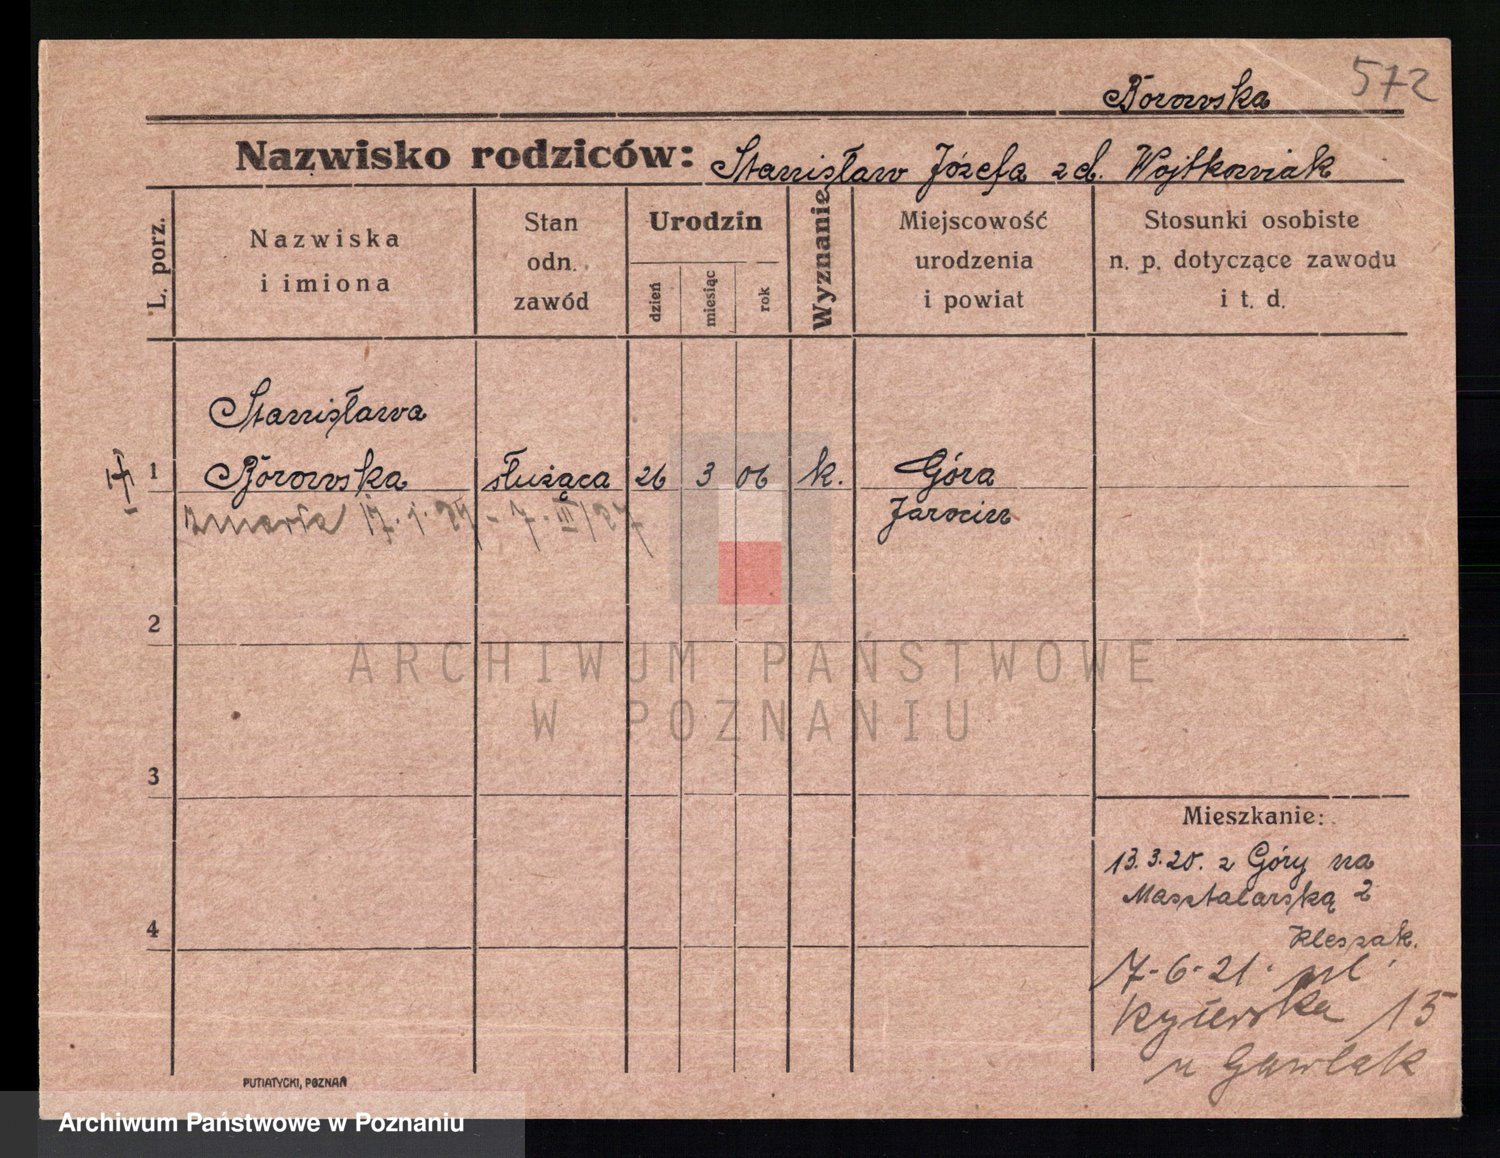 572
Borowska
Nazwisko rodziców: Stanisław Józefa zd. Wojtkowiak
L. porz.
Nazwiska
i imiona
Stan
odn.
zawód
Urodzin
dzień
miesiąc
rok
Wyznanie
Miejscowość
urodzenia
i powiat
Stosunki osobiste
n. p. dotyczące zawodu
i t. d.
Stanisława
1 Borowska służąca 26 3 06 k. Góra
Jarocin
zmarła 17. 1.
2
3
4
Mieszkanie:
13.3.20. z Góry na
Masztalarską 2
Kleszak.
7-6-21. pl.
15
u Gawlak
PUTIATYCKI, POZNAŃ
ARCHIWUM PAŃSTWOWE
W POZNANIU
Archiwum Państwowe w Poznaniu